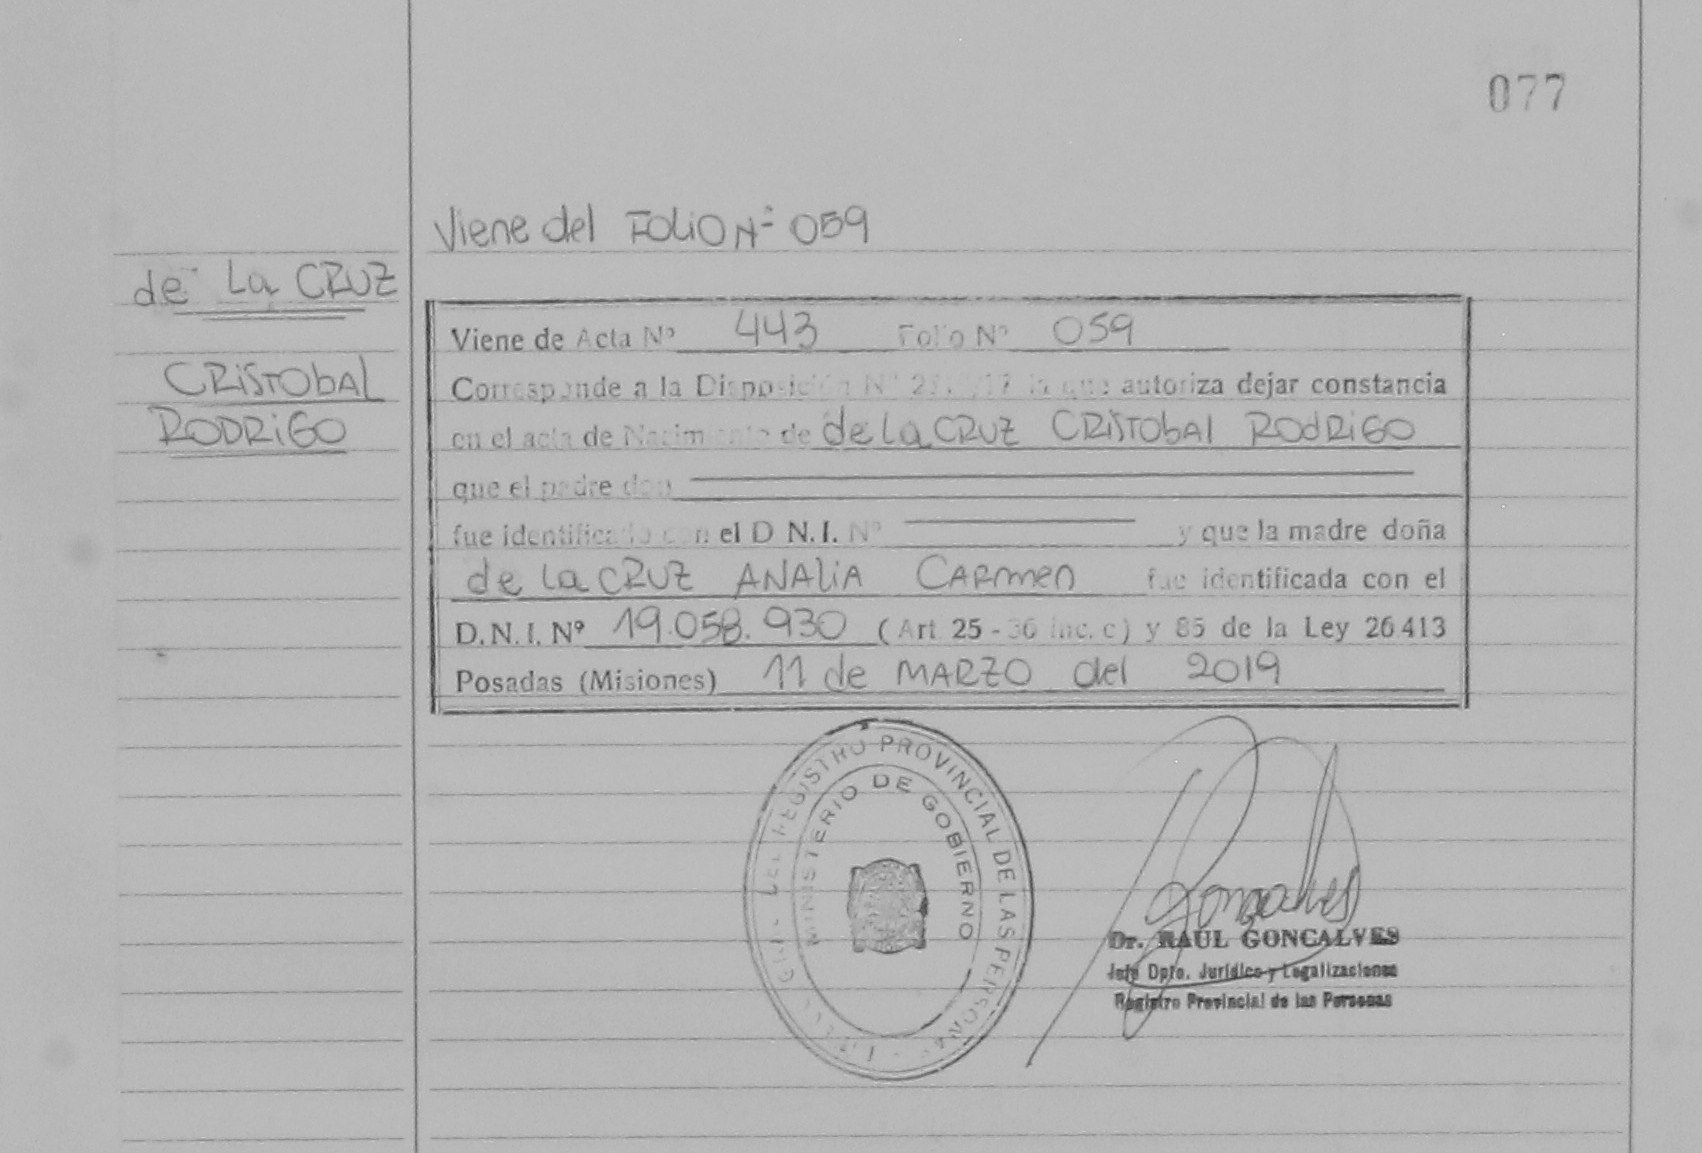 077
Viene del FOLIO Nº 059
de La CRUZ
CRISTObAL
RODRIGO
Viene de Acta Nº 443 Folio Nº 059
Corresponde a la Disposición Nº la que autoriza dejar constancia
en el acta de Nacimiento de de La CRUZ CRISTObAl ROdRiGO
que el padre don
fue identificado con el D N.I. Nº y que la madre doña
de La CRUZ ANALiA CARmen fue identificada con el
D.N.I. Nº 19.058.930 (Art 25 - 36 inc. c) y 85 de la Ley 26413
Posadas (Misiones) 11 de MARZO del 2019
REGISTRO PROVINCIAL DE LAS PERSONAS
MINISTERIO DE GOBIERNO
Goncalves
Dr. RAUL GONCALVES
Jefe Dpto. Jurídico y Legalizaciones
Registro Provincial de las Personas